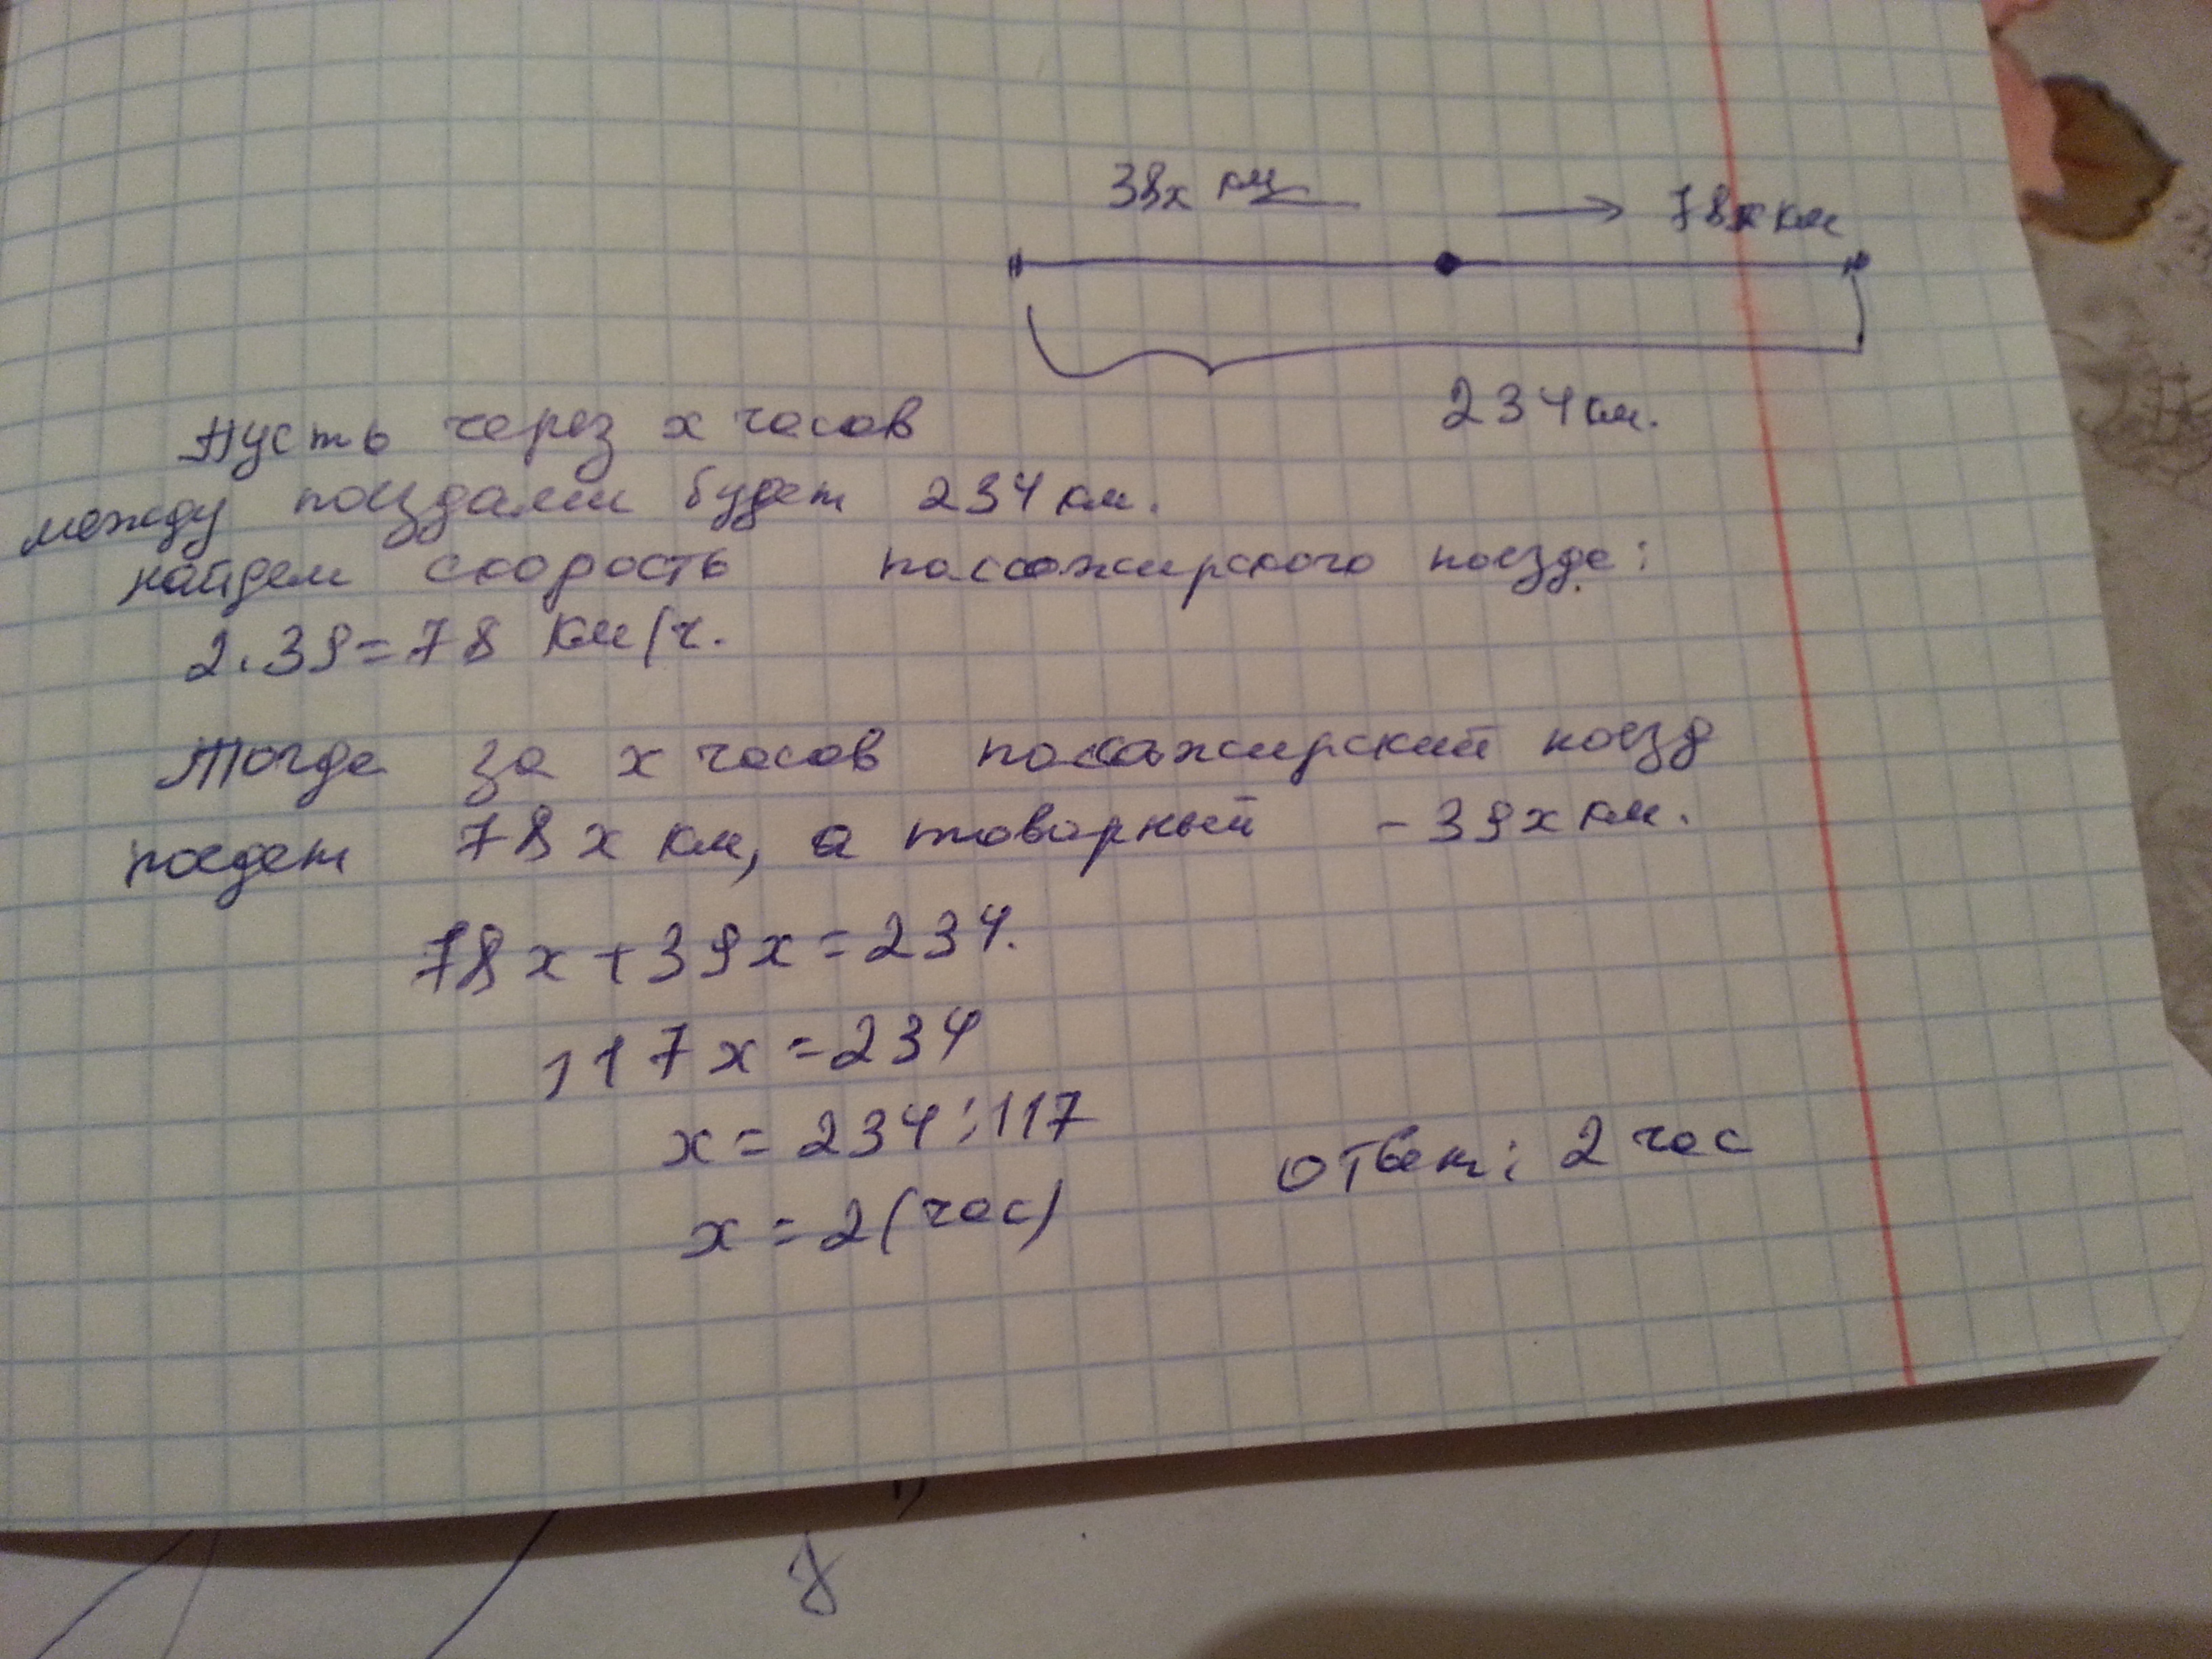 39х км
78х км
234 км.
Пусть через х часов
между поездами будет 234 км.
найдем скорость пассажирского поезда:
2.39=78 км/ч.
Тогда за х часов пассажирский поезд
поедет 78х км, а товарный - 39х км.
78х+39х=234.
117х=234
х=234:117
х=2(час)
ответ: 2 час